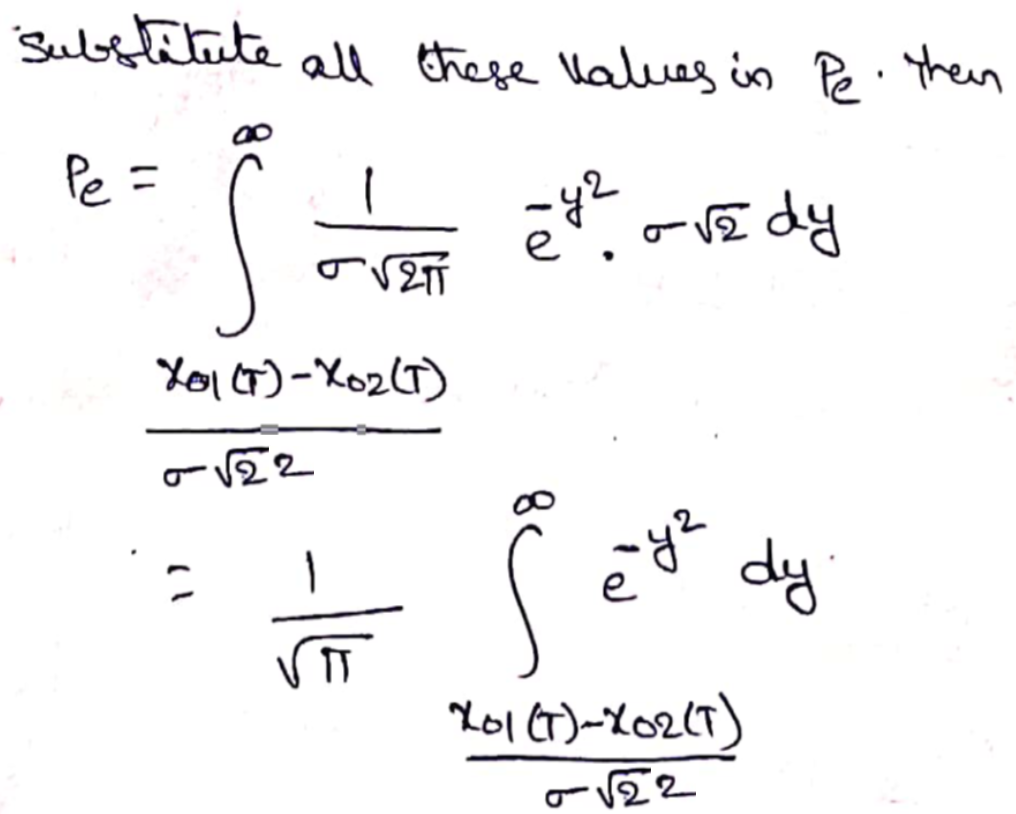 Substitute all these values in Pe. then
Pe = ∫_{(x01(T)-x02(T))/(σ√2 2)}^{∞} 1/(σ√2π) e^{-y²} . σ√2 dy
= 1/√π ∫_{(x01(T)-x02(T))/(σ√2 2)}^{∞} e^{-y²} dy